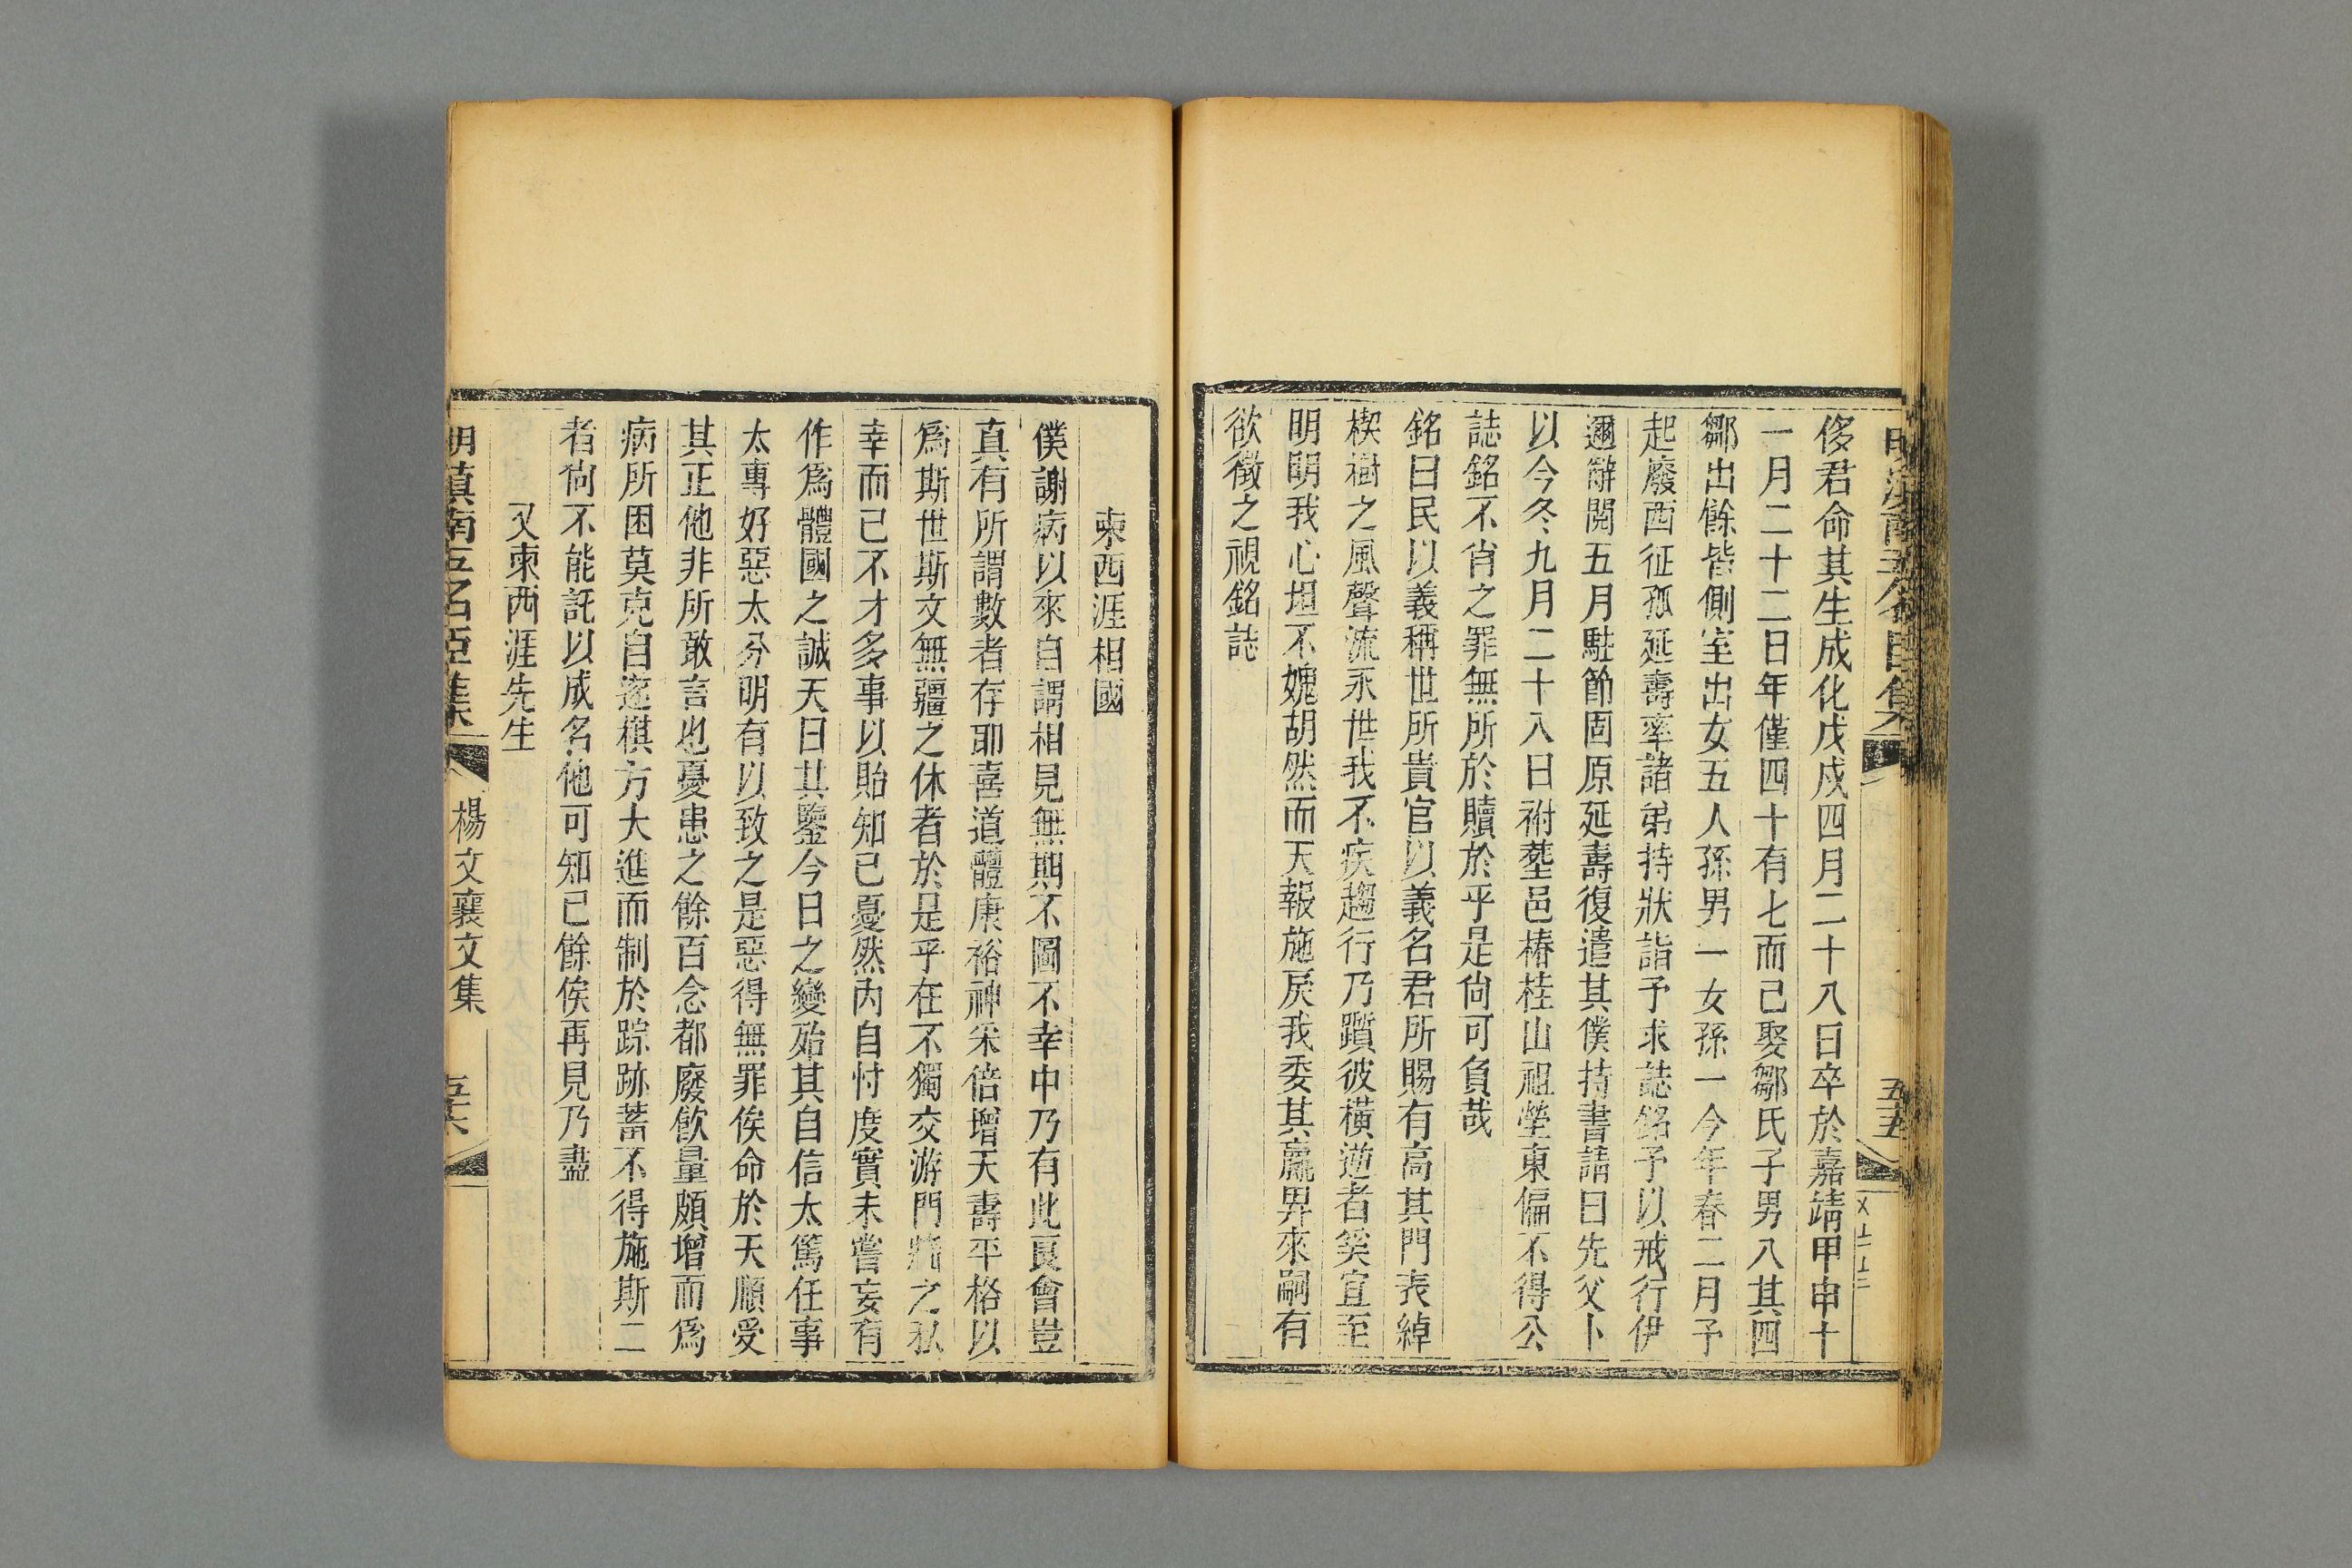 五五
侈君命其生成化戊戍四月二十八日卒於嘉靖甲申十
一月二十二日年僅四十有七而己娶鄒氏子男八其四
鄒出餘皆側室出女五人孫男一女孫一今年春二月予
起廢西征孤延壽率諸弟持狀詣予求誌銘予以戒行伊
邇辭閱五月駐節固原延壽復遣其僕持書請曰先父卜
以今冬九月二十八日祔塟邑椿桂山祖塋東偏不得公
誌銘不肖之罪無所於贖於乎是尙可負哉
銘曰民以義稱世所貴官以義名君所賜有高其門表綽
楔樹之風聲流永世我不疾趨行乃躓彼橫逆者奚宜至
明明我心坦不媿胡然而天報施戾我委其贏畀來嗣有
欲徵之視銘誌
柬西涯相國
僕謝病以來自謂相見無期不圖不幸中乃有此良會豈
真有所謂數者存耶喜道體康裕神采倍增天壽平格以
爲斯世斯文無疆之休者於是乎在不獨交游門墻之私
幸而己不才多事以貽知己憂然內自忖度實未嘗妄有
作爲體國之誠天日其鑒今日之變殆其自信太篤任事
太專好惡太分明有以致之是惡得無罪俟命於天順受
其正他非所敢言也憂患之餘百念都廢飮量頗增而爲
病所困莫克自遂棋方大進而制於踪跡蓄不得施斯二
者尙不能託以成名他可知已餘俟再見乃盡
又柬西涯先生
明滇南五名臣集
楊文襄文集
五六